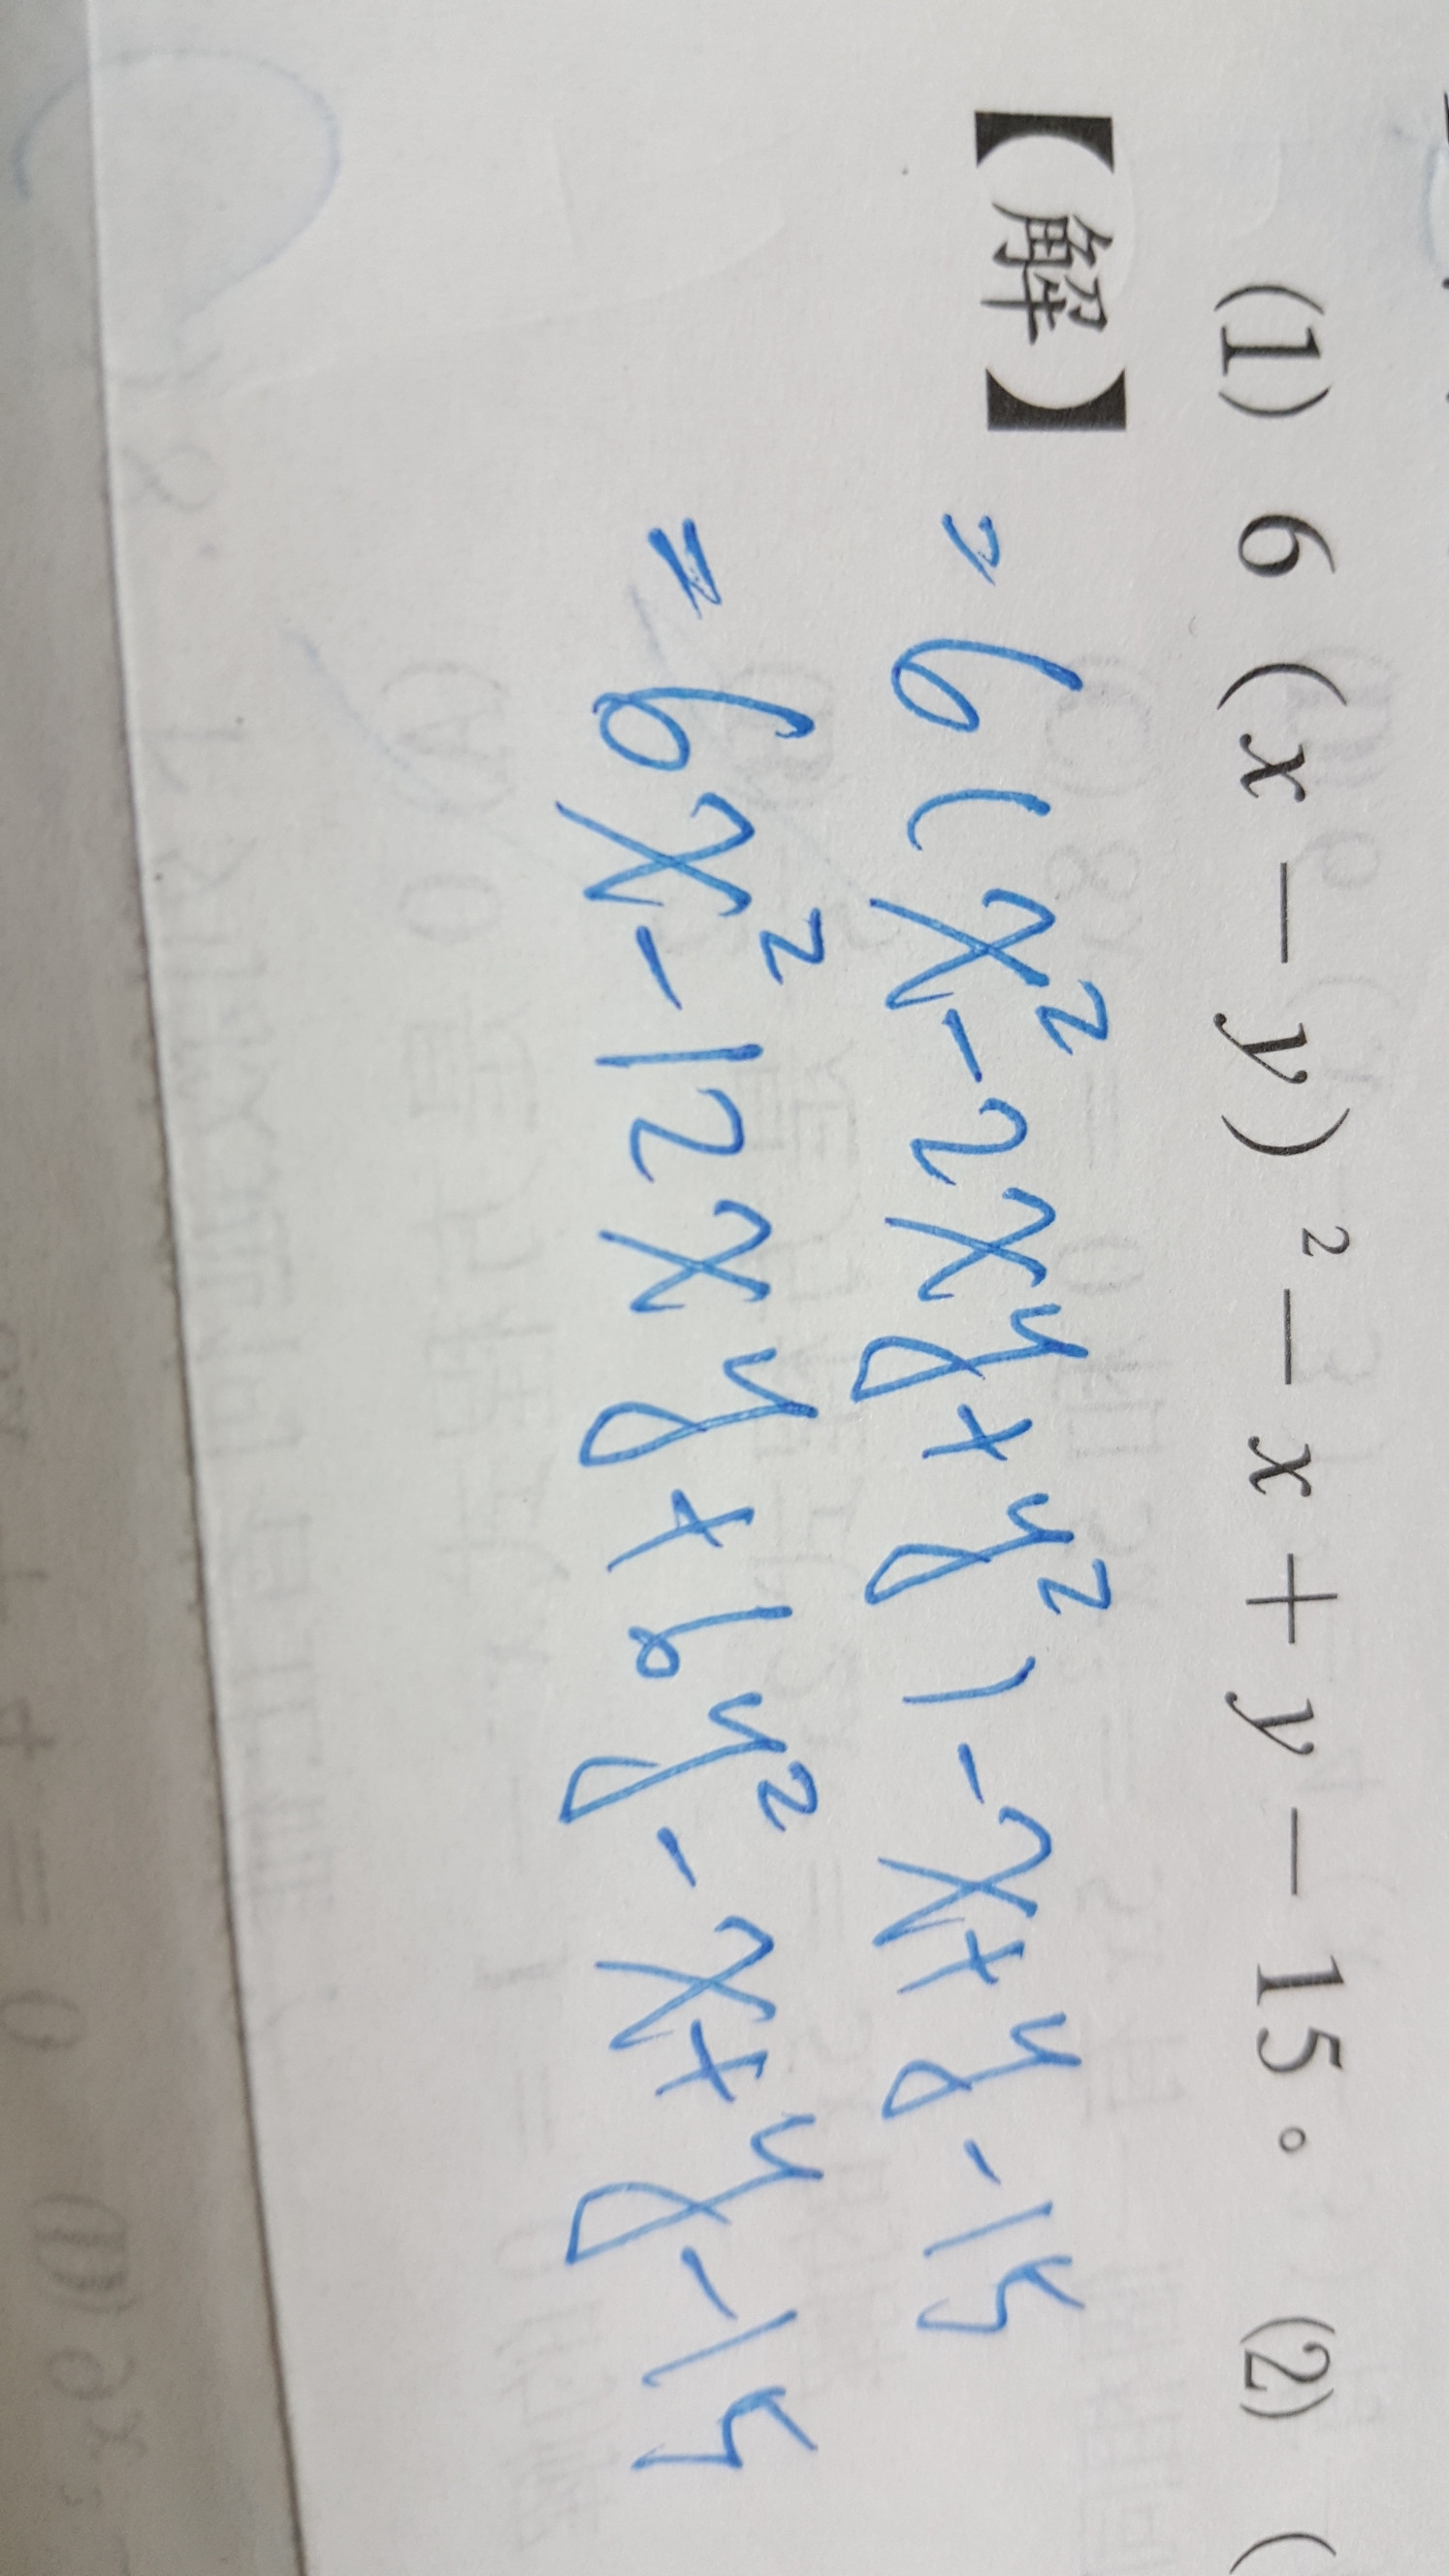 (1) 6 (x − y)² − x + y − 15。 (2) (
【解】 = 6(x²-2xy+y²)-x+y-15
= 6x²-12xy+6y²-x+y-15